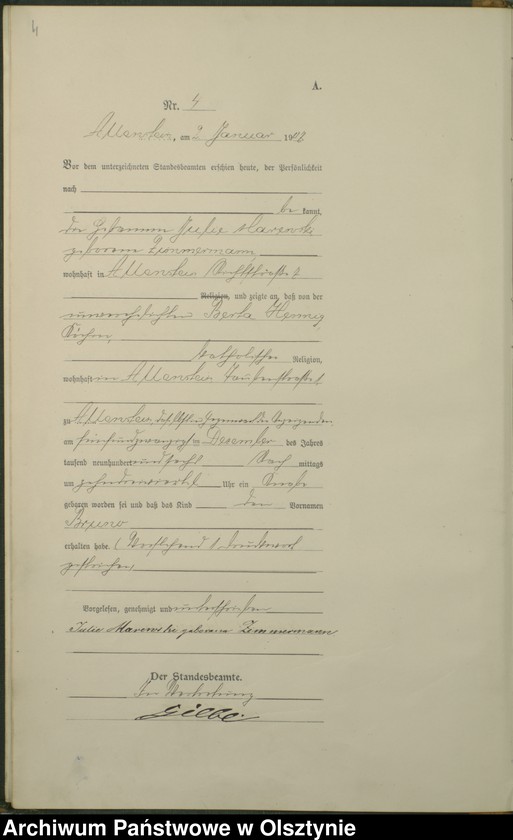 4
A.
Nr. 4
Allenstein, am 2. Januar 19
Vor dem unterzeichneten Standesbeamten erschien heute, der Persönlichkeit
nach
be kannt,
die Hebamme Julie Marewski
geborene Zimmermann,
wohnhaft in Allenstein
Religion, und zeigte an, daß von der
unverehelichten Berta Hennig
katholischer Religion,
wohnhaft in Allenstein
zu Allenstein, in Gegenwart der Anzeigenden
am fünfundzwanzigsten Dezember des Jahres
tausend neunhundert und sechs Nach mittags
um Uhr ein Knabe
geboren worden sei und daß das Kind den Vornamen
Bruno
erhalten habe. (Vorstehend 1 Druckwort
gestrichen.
Vorgelesen, genehmigt und unterschrieben
Julie Marewski geborene Zimmermann
Der Standesbeamte.
In Vertretung
Archiwum Państwowe w Olsztynie